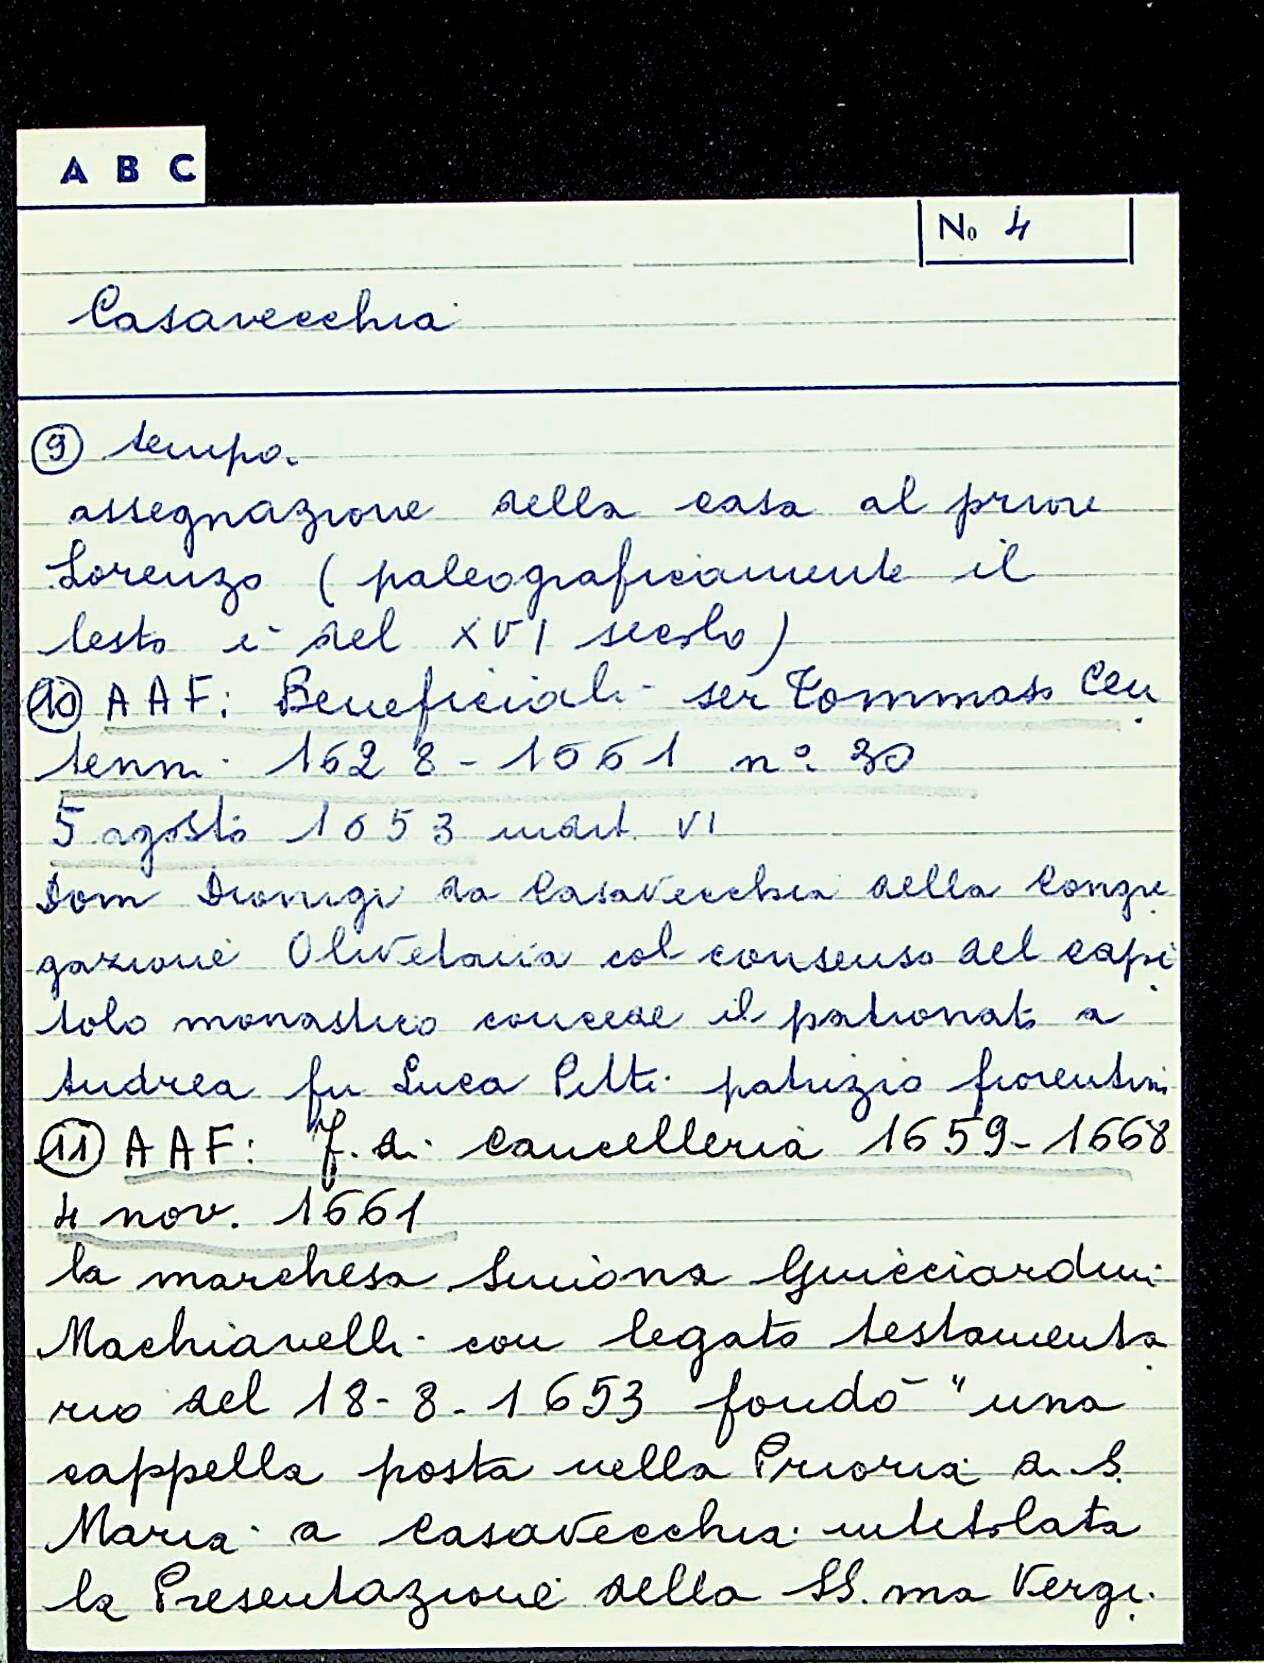 A B C
No 4
Casavecchia
⑨ tempo.
assegnazione della casa al priore
Lorenzo (paleograficamente il
testo è del XVI secolo)
⑩ AAF: Beneficiali ser Tommaso Cen
tenni 1628-1661 n° 30
5 agosto 1653 indit. VI
Dom Dionigi da Casavecchia della Congre
gazione Olivetana col consenso del capi
tolo monastico concede il patronato a
Andrea fu Luca Pitti patrizio fiorentino
⑪ AAF: f. di cancelleria 1659-1668
4 nov. 1661
la marchesa Simona Guicciardini
Machiavelli con legato testamenta
rio del 18-8-1653 fondò "una
cappella posta nella Prioria di S.
Maria a Casavecchia intitolata
la Presentazione della SS.ma Vergi.